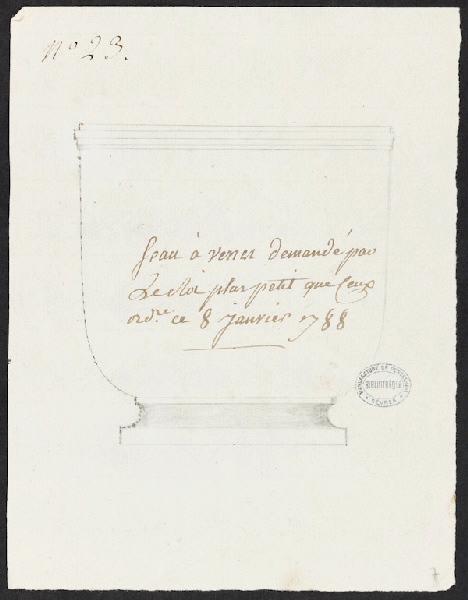 N.º 23.
Seau à verres demandé par
Le Roi plus petit que Ceux
ord.re ce 8 janvier 1788
MANUFACTURE DE PORCELAINE
BIBLIOTHÈQUE
SÈVRES
7